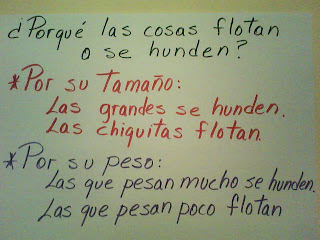 ¿Porqué las cosas flotan
o se hunden?
* Por su Tamaño:
Las grandes se hunden.
Las chiquitas flotan.
* Por su peso:
Las que pesan mucho se hunden.
Las que pesan poco flotan